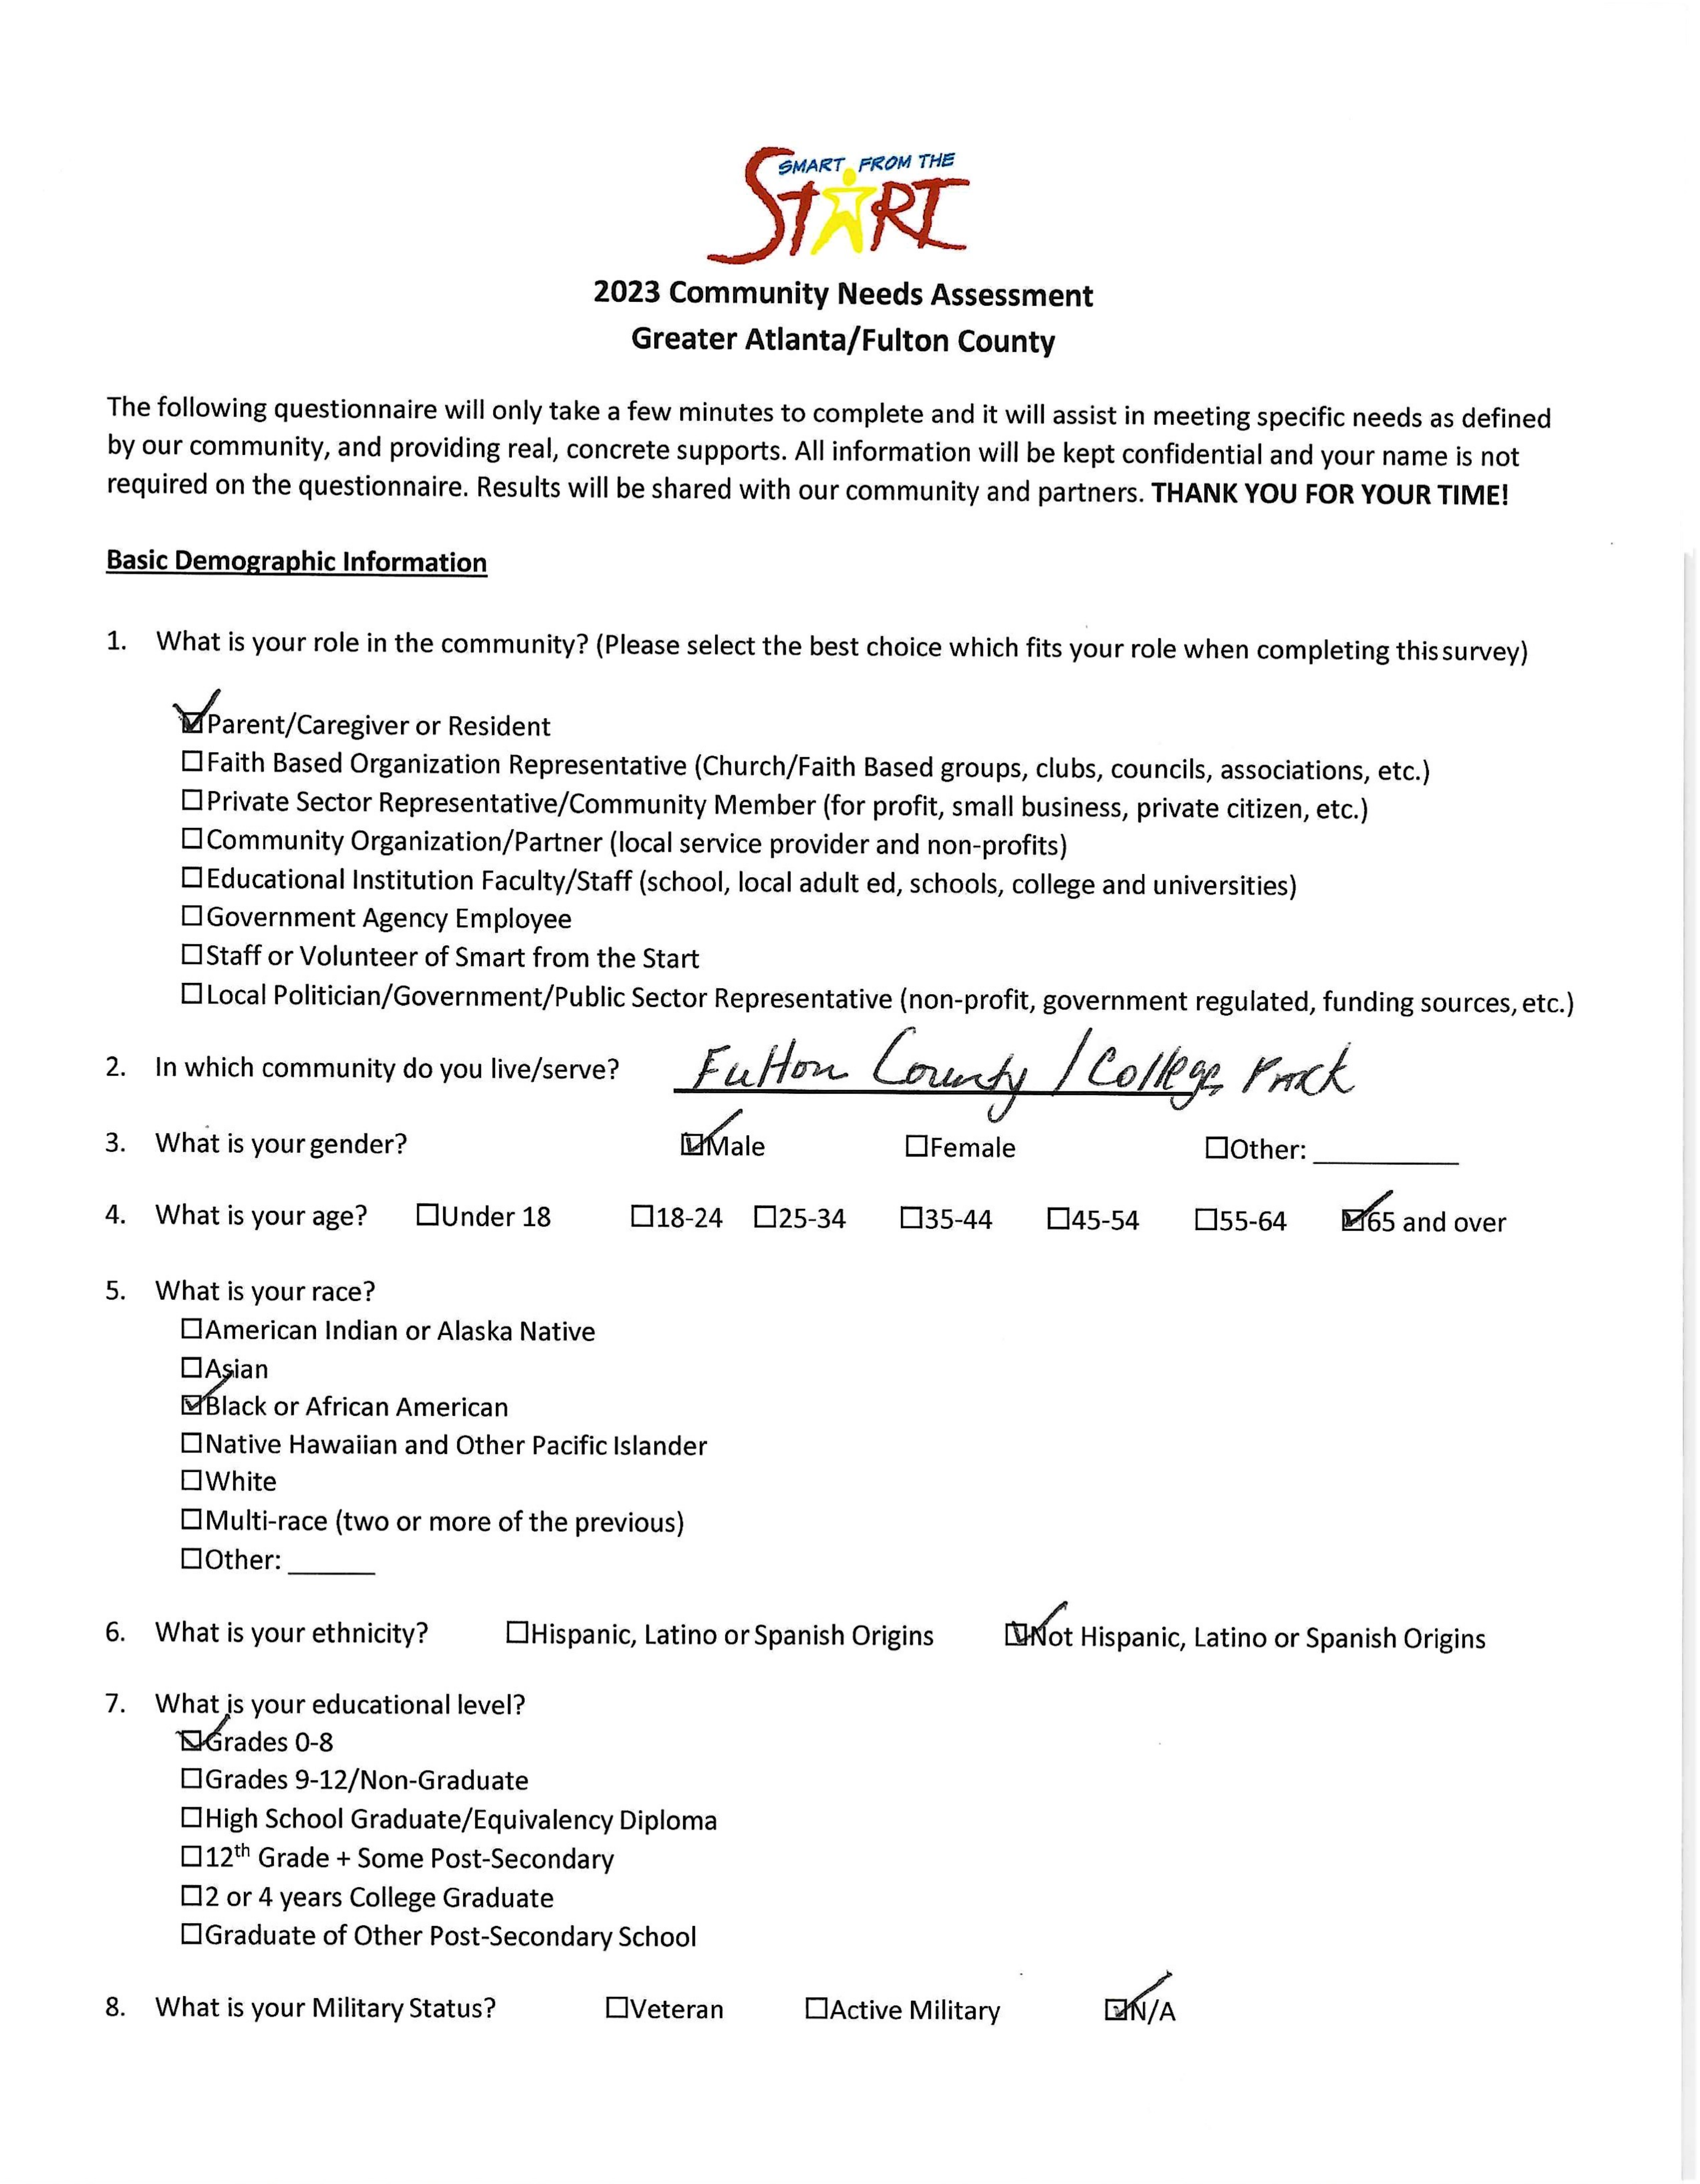 SMART FROM THE
START
2023 Community Needs Assessment
Greater Atlanta/Fulton County
The following questionnaire will only take a few minutes to complete and it will assist in meeting specific needs as defined
by our community, and providing real, concrete supports. All information will be kept confidential and your name is not
required on the questionnaire. Results will be shared with our community and partners. THANK YOU FOR YOUR TIME!
Basic Demographic Information
1. What is your role in the community? (Please select the best choice which fits your role when completing this survey)
☑Parent/Caregiver or Resident
☐Faith Based Organization Representative (Church/Faith Based groups, clubs, councils, associations, etc.)
☐Private Sector Representative/Community Member (for profit, small business, private citizen, etc.)
☐Community Organization/Partner (local service provider and non-profits)
☐Educational Institution Faculty/Staff (school, local adult ed, schools, college and universities)
☐Government Agency Employee
☐Staff or Volunteer of Smart from the Start
☐Local Politician/Government/Public Sector Representative (non-profit, government regulated, funding sources, etc.)
2. In which community do you live/serve? Fulton County / College Park
3. What is your gender? ☑Male ☐Female ☐Other: __________
4. What is your age? ☐Under 18 ☐18-24 ☐25-34 ☐35-44 ☐45-54 ☐55-64 ☑65 and over
5. What is your race?
☐American Indian or Alaska Native
☐Asian
☑Black or African American
☐Native Hawaiian and Other Pacific Islander
☐White
☐Multi-race (two or more of the previous)
☐Other: ______
6. What is your ethnicity? ☐Hispanic, Latino or Spanish Origins ☑Not Hispanic, Latino or Spanish Origins
7. What is your educational level?
☑Grades 0-8
☐Grades 9-12/Non-Graduate
☐High School Graduate/Equivalency Diploma
☐12th Grade + Some Post-Secondary
☐2 or 4 years College Graduate
☐Graduate of Other Post-Secondary School
8. What is your Military Status? ☐Veteran ☐Active Military ☑N/A